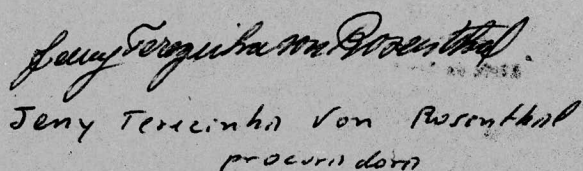 Jeny Terezinha von Rosenthal
Jeny Terezinha Von Rosenthal
procuradora